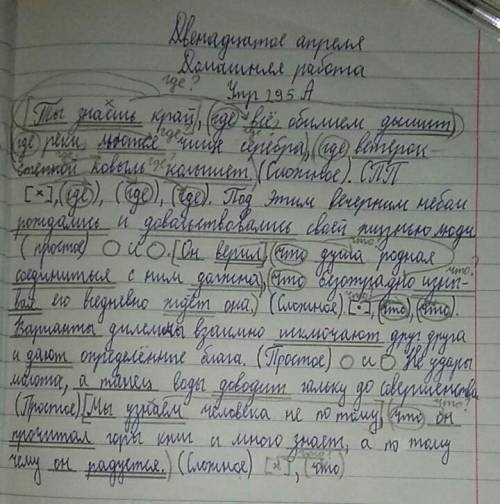 Двенадцатое апреля
Домашняя работа
где?
Упр 295 А
[Ты знаешь край], (где всё обилием дышит)
(где реки льются чище серебра, (где ветерок
где? где?
степной ковыль колышет) (Сложное). СПП
где?
[×], (где), (где), (где). Под этим вечерним небом
рождались и довольствовались своей жизнью люди
(простое) О и О. [Он верил], (что душа родная
что?
соединиться с ним должна), (что безотрадно изны-
что?
вая его вседневно ждёт она.) (Сложное) [×], (что), (что).
что?
Варианты дилеммы взаимно исключают друг друга
и дают определённые блага. (Простое) О и О Не удары
молота, а танец воды доводит гальку до совершенства
(Простое) [Мы узнаём человека не по тому], (что он
что?
прочитал горы книг и много знает, а по тому
чему он радуется.) (Сложное) [×], (что)